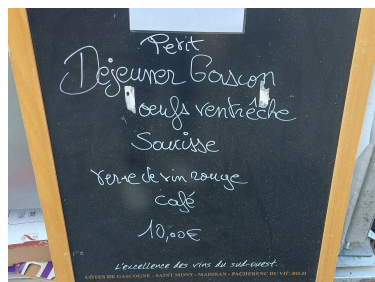 Petit
Déjeuner Gascon
oeufs ventrêche
Saucisse
verre de vin rouge
café
10,00€
L'excellence des vins du sud-ouest
CÔTES DE GASCOGNE - SAINT MONT - MADIRAN - PACHERENC DU VIC-BILH